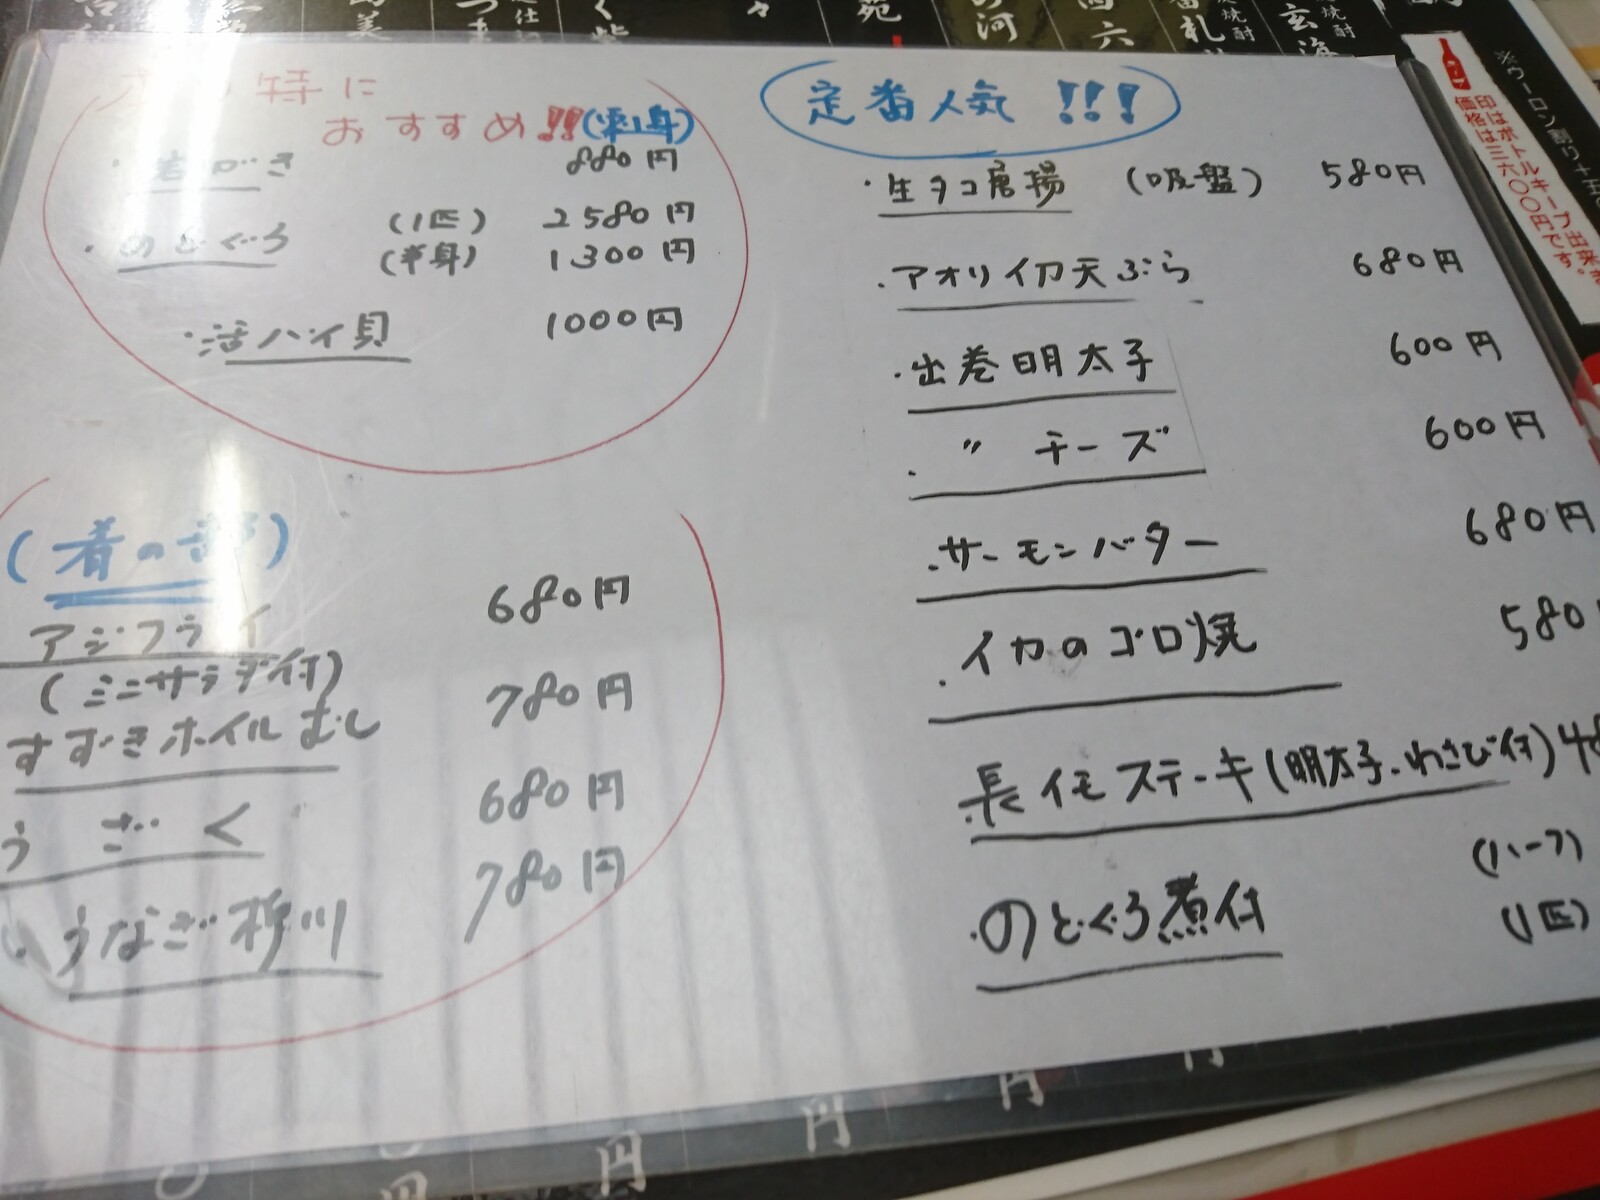 特に
おすすめ!!(刺身)
岩がき 880円
・のどぐろ (1匹) 2580円
(半身) 1300円
・活ハイ貝 1000円
(肴の部)
アジフライ 680円
(ミニサラダ付)
すずきホイルむし 780円
うざく 680円
うなぎ柳川 780円
定番人気!!!
・生タコ唐揚 (吸盤) 580円
・アオリイカ天ぷら 680円
・出巻明太子 600円
・〃 チーズ 600円
・サーモンバター 680円
・イカのゴロ焼 580
・長イモステーキ(明太子、わさび付)
(ハーフ)
・のどぐろ煮付 (1匹)
印はボトルキープ出来
価格は三六〇〇円です。
※ウーロン割り+
円
円
円
円